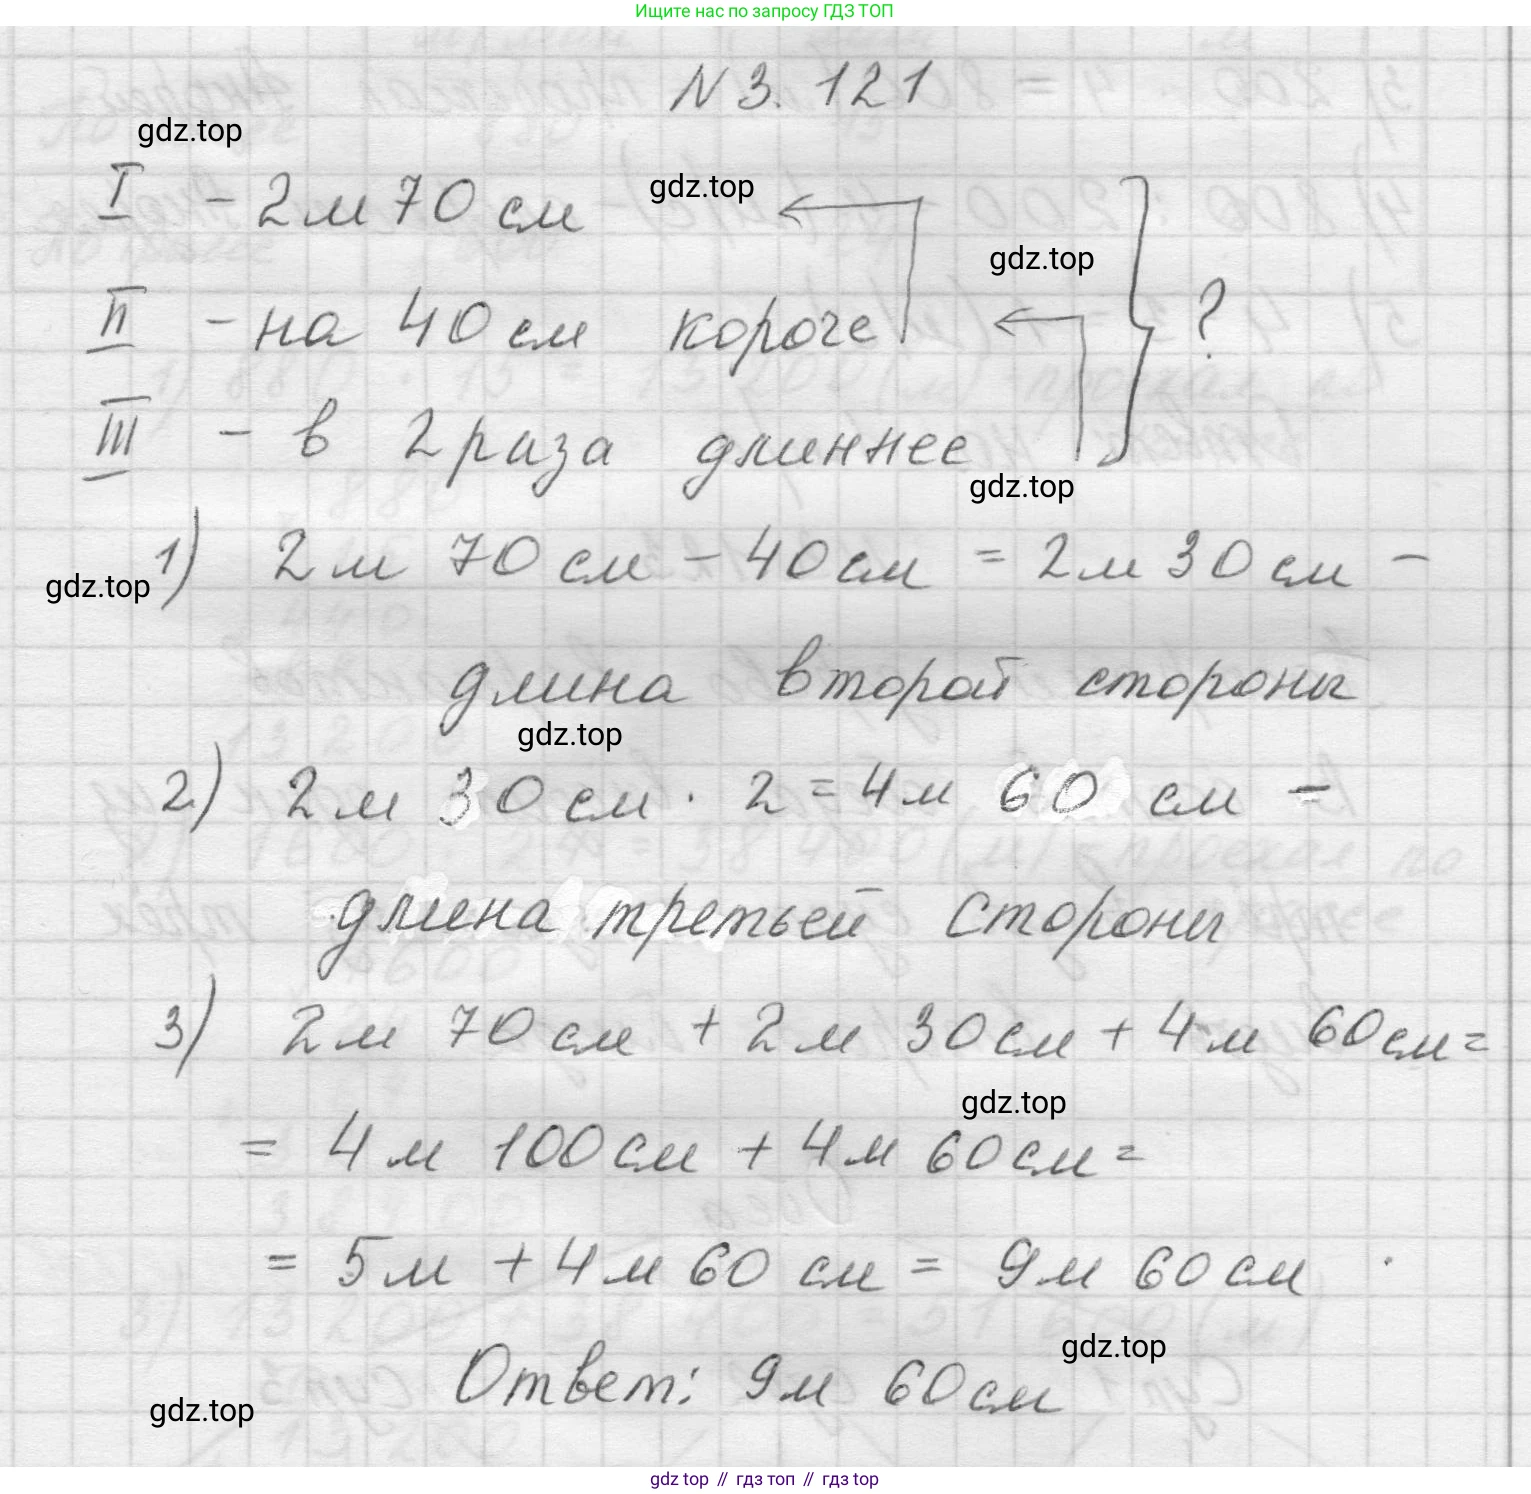 Ищите нас по запросу ГДЗ ТОП
N 3. 121
gdz.top
I - 2 м 70 см
gdz.top
gdz.top
II - на 40 см короче
?
III - в 2 раза длиннее
gdz.top
1) 2 м 70 см - 40 см = 2 м 30 см -
gdz.top
длина второй стороны
gdz.top
2) 2 м 30 см · 2 = 4 м 60 см -
длина третьей стороны
3) 2 м 70 см + 2 м 30 см + 4 м 60 см =
gdz.top
= 4 м 100 см + 4 м 60 см =
= 5 м + 4 м 60 см = 9 м 60 см
gdz.top
Ответ: 9 м 60 см
gdz.top
gdz top // гдз топ // гдз top